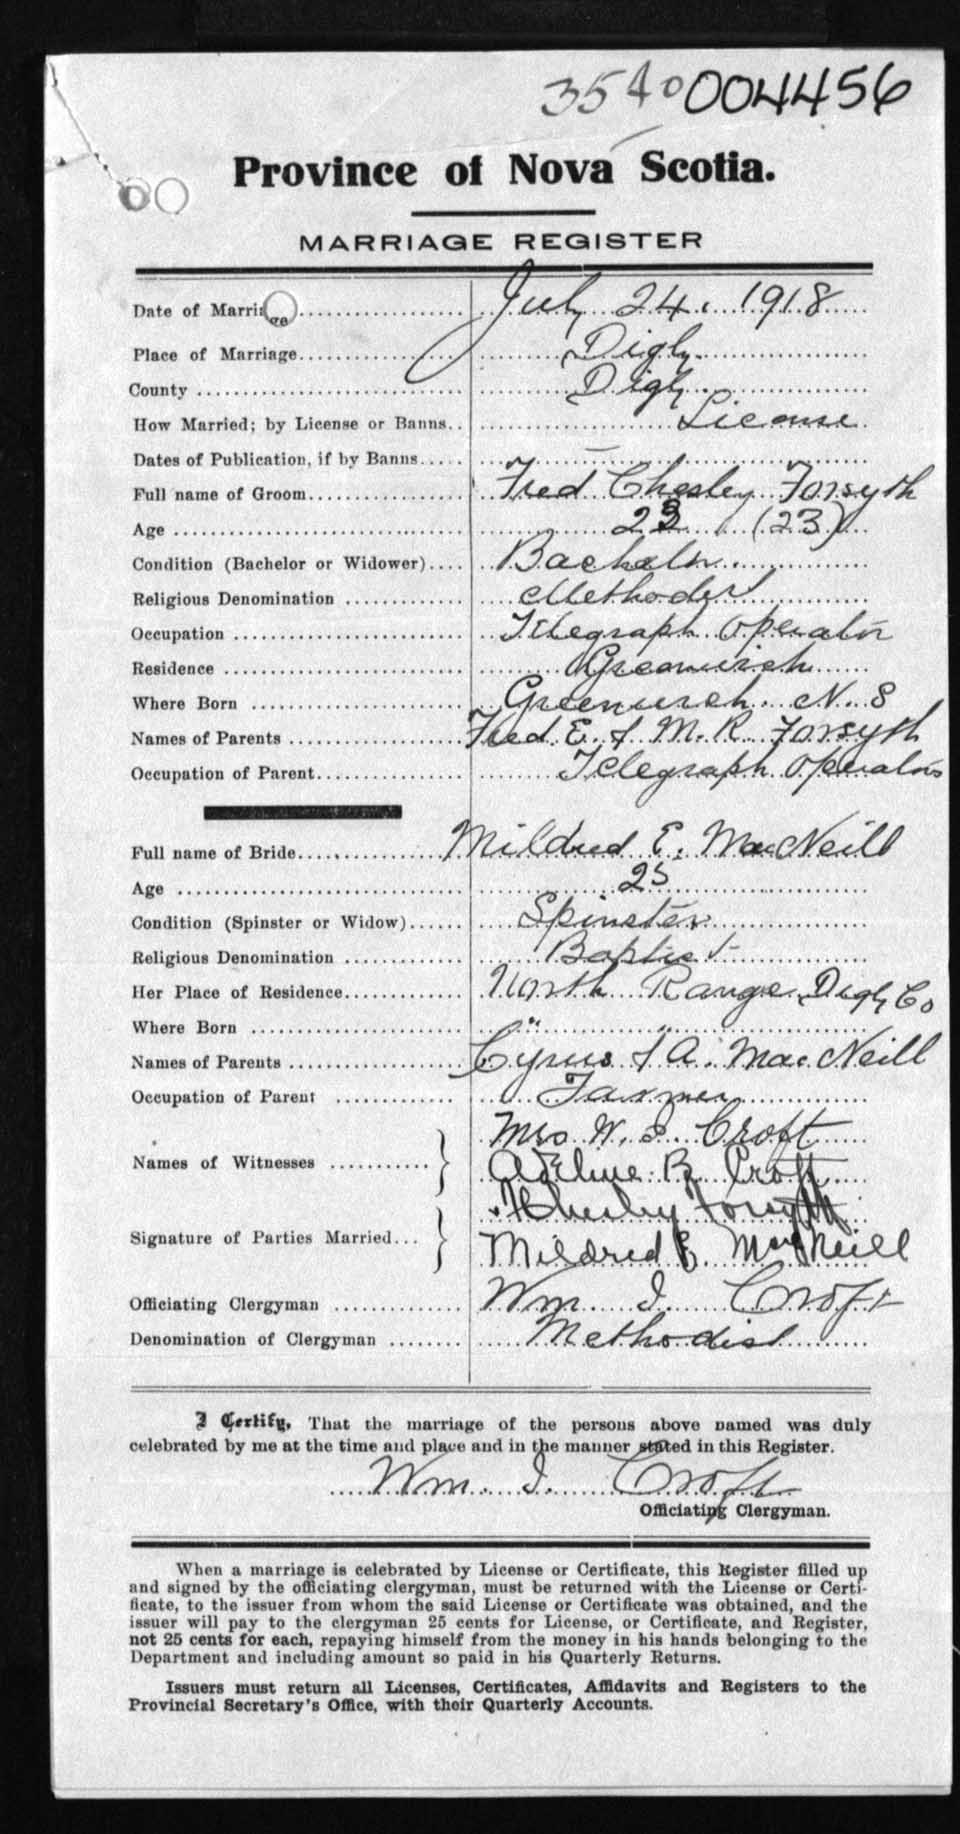 3540 004456
Province of Nova Scotia.
MARRIAGE REGISTER
Date of Marriage July 24. 1918
Place of Marriage Digby
County Digby
How Married; by License or Banns License
Dates of Publication, if by Banns —
Full name of Groom Fred Chesley Forsyth
Age 23 (23)
Condition (Bachelor or Widower) Bachelor
Religious Denomination Methodist
Occupation Telegraph Operator
Residence Greenwich
Where Born Greenwich N. S
Names of Parents Fred E. & M. R. Forsyth
Occupation of Parent Telegraph Operator
Full name of Bride Mildred E. MacNeill
Age 25
Condition (Spinster or Widow) Spinster
Religious Denomination Baptist
Her Place of Residence North Range Digby Co
Where Born " "
Names of Parents Cyrus & A. MacNeill
Occupation of Parent Farmer
Mrs W. I. Croft
Names of Witnesses Adeline B. Croft
Chesley Forsyth
Signature of Parties Married Mildred E. MacNeill
Officiating Clergyman Wm. I. Croft
Denomination of Clergyman Methodist
I Certify, That the marriage of the persons above named was duly
celebrated by me at the time and place and in the manner stated in this Register.
Wm. I. Croft
Officiating Clergyman.
When a marriage is celebrated by License or Certificate, this Register filled up
and signed by the officiating clergyman, must be returned with the License or Certi-
ficate, to the issuer from whom the said License or Certificate was obtained, and the
issuer will pay to the clergyman 25 cents for License, or Certificate, and Register,
not 25 cents for each, repaying himself from the money in his hands belonging to the
Department and including amount so paid in his Quarterly Returns.
Issuers must return all Licenses, Certificates, Affidavits and Registers to the
Provincial Secretary's Office, with their Quarterly Accounts.